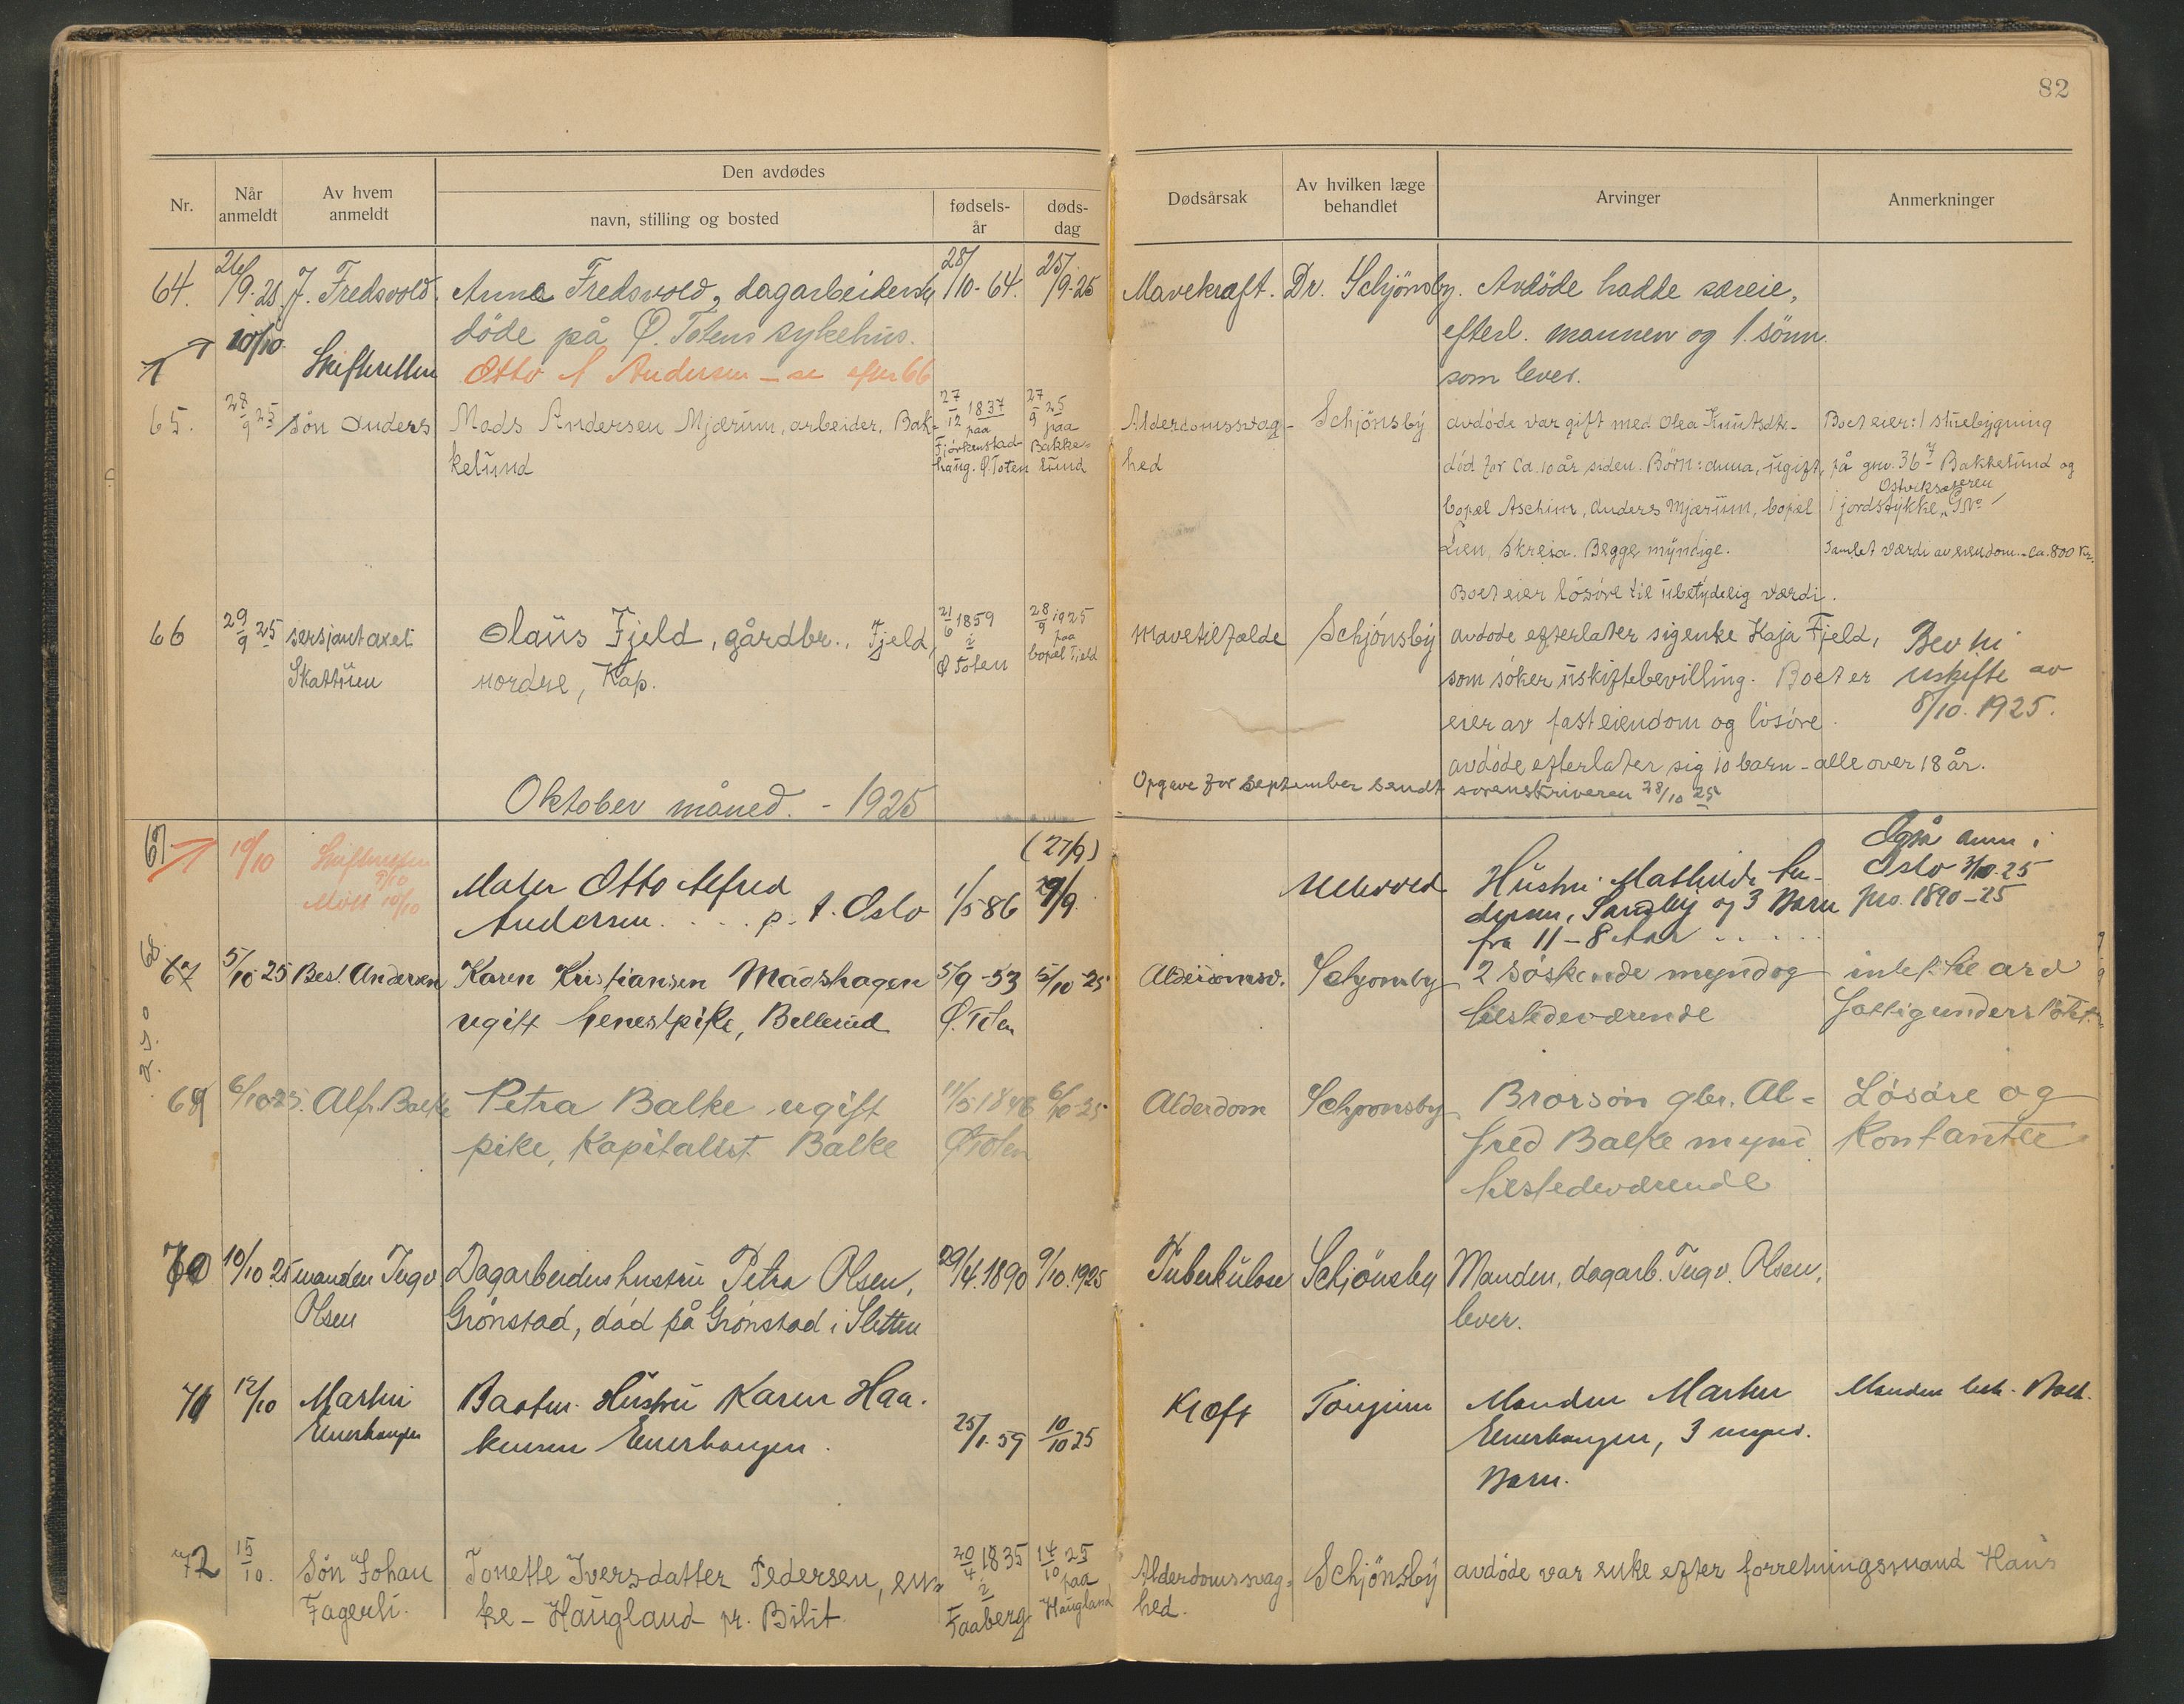 82
Den avdødes
Nr.
Når anmeldt
Av hvem anmeldt
navn, stilling og bosted
fødsels-år
døds-dag
Dødsårsak
Av hvilken læge behandlet
Arvinger
Anmerkninger
64. 26/9-25. J. Fredsvold. Anna Fredsvold, dagarbeider 28/10-64. 25/9-25 Mavekræft. Dr. Schjönsby. Avdöde hadde særeie,
döde på Ø. Totens sykehus. efterl. mannen og 1. sönn
som lever.
10/10. Skifteretten Otto A Andersen - se efter 66
65. 28/9 25 Søn Anders Mads Andersen Mjærum, arbeider, Bak- 27/12 1837 27/9 25 Alderdomssvag- Schjönsby avdöde var gift med Olea Knutsdtr. Boet eier: 1 stuebygning
kelund paa Fjörkenstad haug. Ø. Toten paa Bakke- lund hed död for ca. 10 år siden. Börn: Anna, ugift, på gnr. 36/7 Bakkelund og
bopæl Aschim, Anders Mjærum, bopæl 1 jordstykke,
Lien, Skreia. Begge myndige. Samlet værdi av eiendom. ca. 800 kr.
Boet eier lösöre til ubetydelig værdi.
66 29/9 25 sersjant Axel Olaus Fjeld, gårdbr., Fjeld, 21/6 1859 28/9 1925 Mavetilfælde Schjönsby avdöde efterlater sig enke Kaja Fjeld, Bev. til
Skattum nordre, Kap. i Ø Toten paa bopæl Fjeld som söker uskiftebevilling. Boet er uskifte av
eier av fast eiendom og lösöre. 8/10. 1925.
avdöde efterlater sig 10 barn - alle over 18 år.
Opgave for september sendt sorenskriveren 28/10 25
Oktober måned. - 1925
67 10/10 Skifteretten 9/10
Mott 10/10
(27/9)
Maler Otto Alfred
Andersen . . . . p. t. Oslo 1/5 86 29/9. Hustru Mathilde An-
dersen, Sandby og 3 Barn
fra 11 - 8 Aar . . . . .
Også anm. i
Oslo 3/10-25
pro. 1890-25
68
67 5/10 25 Best. Andersen Karen Kristiansen Madshagen 5/9-53 5/10-25 Alderdomsv. Schjønsby 2 söskende myndog intet at arve
ugift tjenestpike, Bellerud Ø. Toten tilstedeværende fattigunderstøttet
69 6/10-25. Alf. Balke Petra Balke ugift 11/5 1846 6/10-25 Alderdom Schjønsby Brorsön gbr. Al- Lösöre og
pike, Kapitalist Balke ØToten fred Balke mynd. Kontanter
tilstedeværende
70 10/10 25 manden Ingv. Dagarbeidershustru Petra Olsen, 29/4. 1890 9/10. 1925 Tuberkulose Schjönsby Manden, dagarb. Ingv. Olsen,
Olsen Grönstad, död på Grönstad i Sletten lever.
71 12/10 Martin Hustru Karen Haa- Kræft Manden Martin Manden beh. Boet.
kensen 25/1-59 10/10 25 3 mynd.
Barn.
72 15/10. Søn Johan Tonette Iversdatter Pedersen, en- 20/4 1835 14/10 25 Alderdomssvag- Schjönsby avdöde var enke efter forretningsmand Hans
Fagerli. ke - Haugland pr. Bilit. i Faaberg paa Haugland hed.